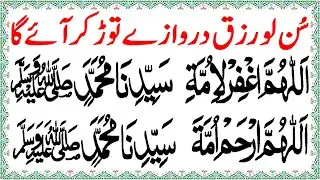 سُن لو رزق دروازے توڑ کر آئے گا
اَللّٰهُمَّ اغْفِرْ لِاُمَّةِ سَیِّدِنَا مُحَمَّدٍ ﷺ
اَللّٰهُمَّ ارْحَمْ اُمَّةَ سَیِّدِنَا مُحَمَّدٍ ﷺ